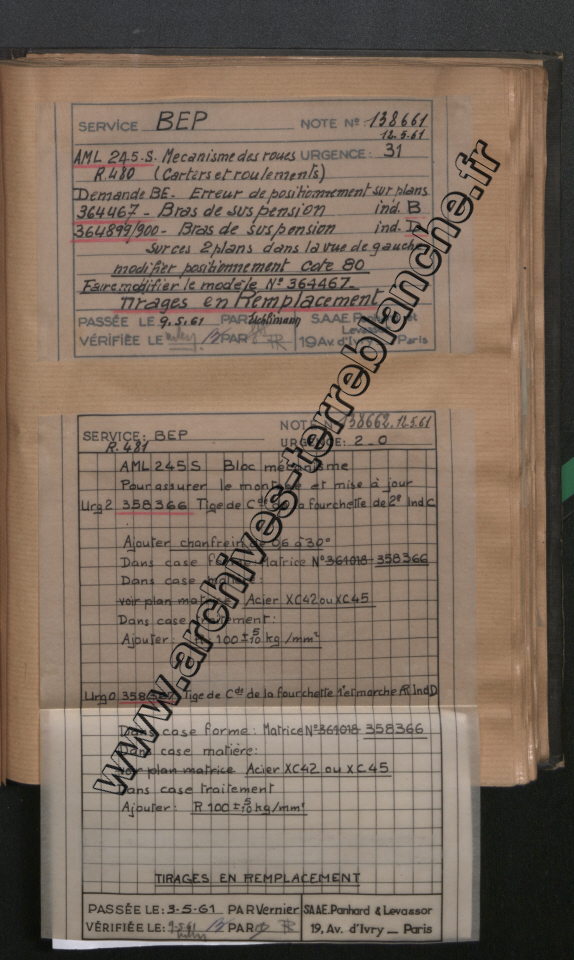 SERVICE BEP NOTE Nº 138661
12.5.61
AML 245.S. Mecanisme des roues URGENCE: 31
R.480 (Carters et roulements)
Demande BE. Erreur de positionnement sur plans
364467 - Bras de suspension ind. B
364899/900 - Bras de suspension ind. D
Sur ces 2 plans dans la vue de gauche
modifier positionnement cote 80
Faire modifier le modèle Nº 364467
Tirages en Remplacement
PASSÉE LE 9.5.61 PAR S.A.A.E. et
Levassor
VÉRIFIÉE LE PAR 19 Av. d'Ivry Paris
NOTE Nº 138662. 12.5.61
SERVICE: BEP URGENCE: 2_0
R.481
AML 245 S Bloc mécanisme
Pour assurer le montage et mise à jour
Urg 2 358366 Tige de Cde de la fourchette de 2e Ind C
Ajouter chanfrein de 0,6 à 30°
Dans case forme Matrice Nº 361018 358366
Dans case matière
voir plan matrice Acier XC42 ou XC45
Dans case traitement:
Ajouter: R 100 ± 5/10 kg/mm²
Urg 0 Tige de Cde de la fourchette 1e et marche AR Ind D
Dans case forme: Matrice Nº 361018 358366
Dans case matière:
voir plan matrice Acier XC42 ou XC45
Dans case traitement
Ajouter: R 100 ± 5/10 kg/mm²
TIRAGES EN REMPLACEMENT
PASSÉE LE: 3-5-61 PAR Vernier S.A.A.E. Panhard & Levassor
VÉRIFIÉE LE: 9-5-61 PAR 19, Av. d'Ivry _ Paris
www.archives-terreblanche.fr